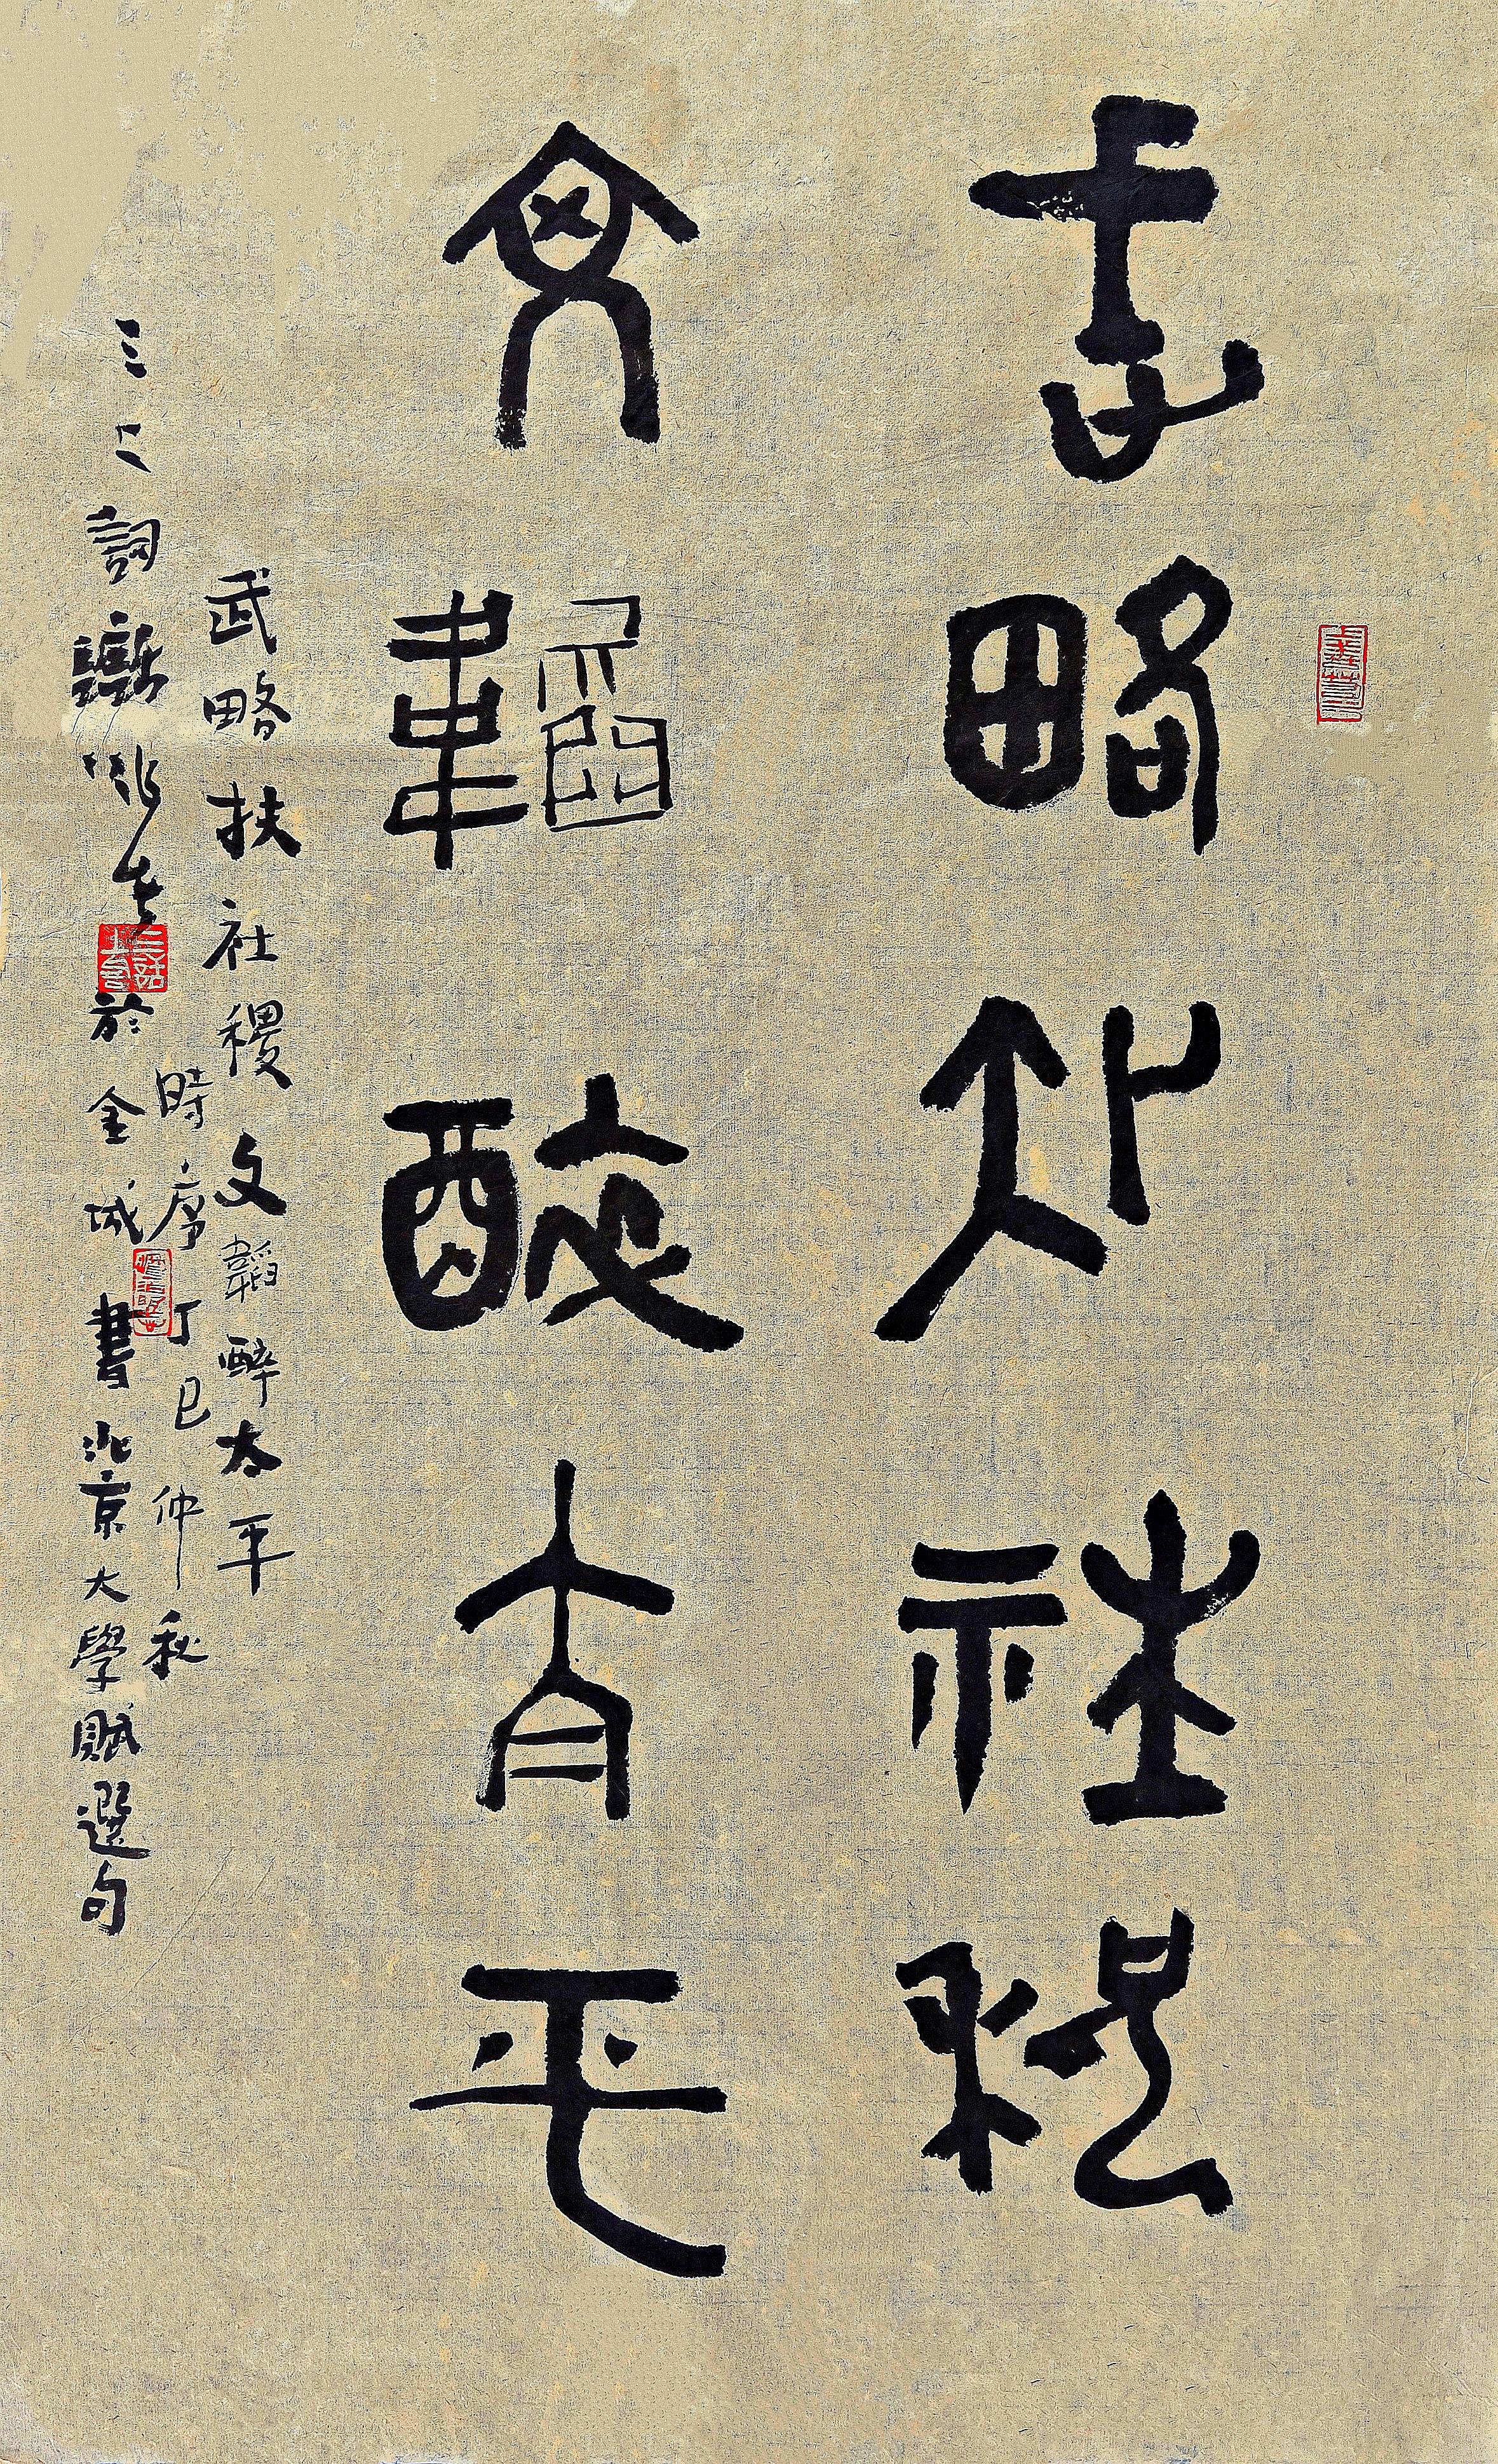 武略扶社稷
文韜醉太平
武略扶社稷 文韜醉太平
時序丁巳仲秋
三二詞
於金城書北京大學賦選句